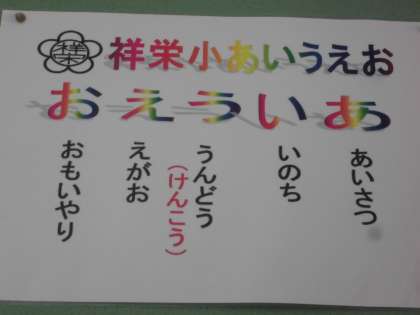 祥栄
祥栄小あいうえお
あ
いうえお
あいさつ
いのち
うんどう
（けんこう）
えがお
おもいやり